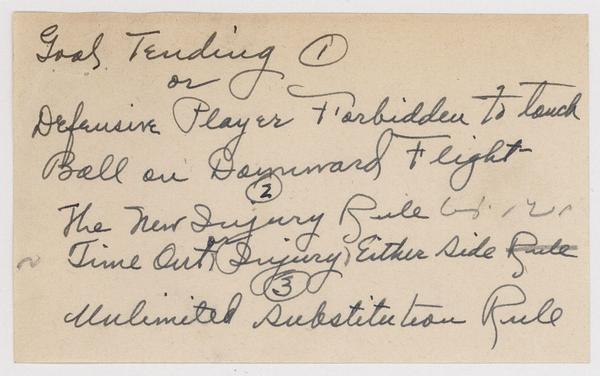 Goal Tending ①
or
Defensive Player Forbidden to touch
Ball on Downward Flight
②
The New Injury Rule
Time Out (Injury) Either Side ~~Rule~~
③
Unlimited Substitution Rule